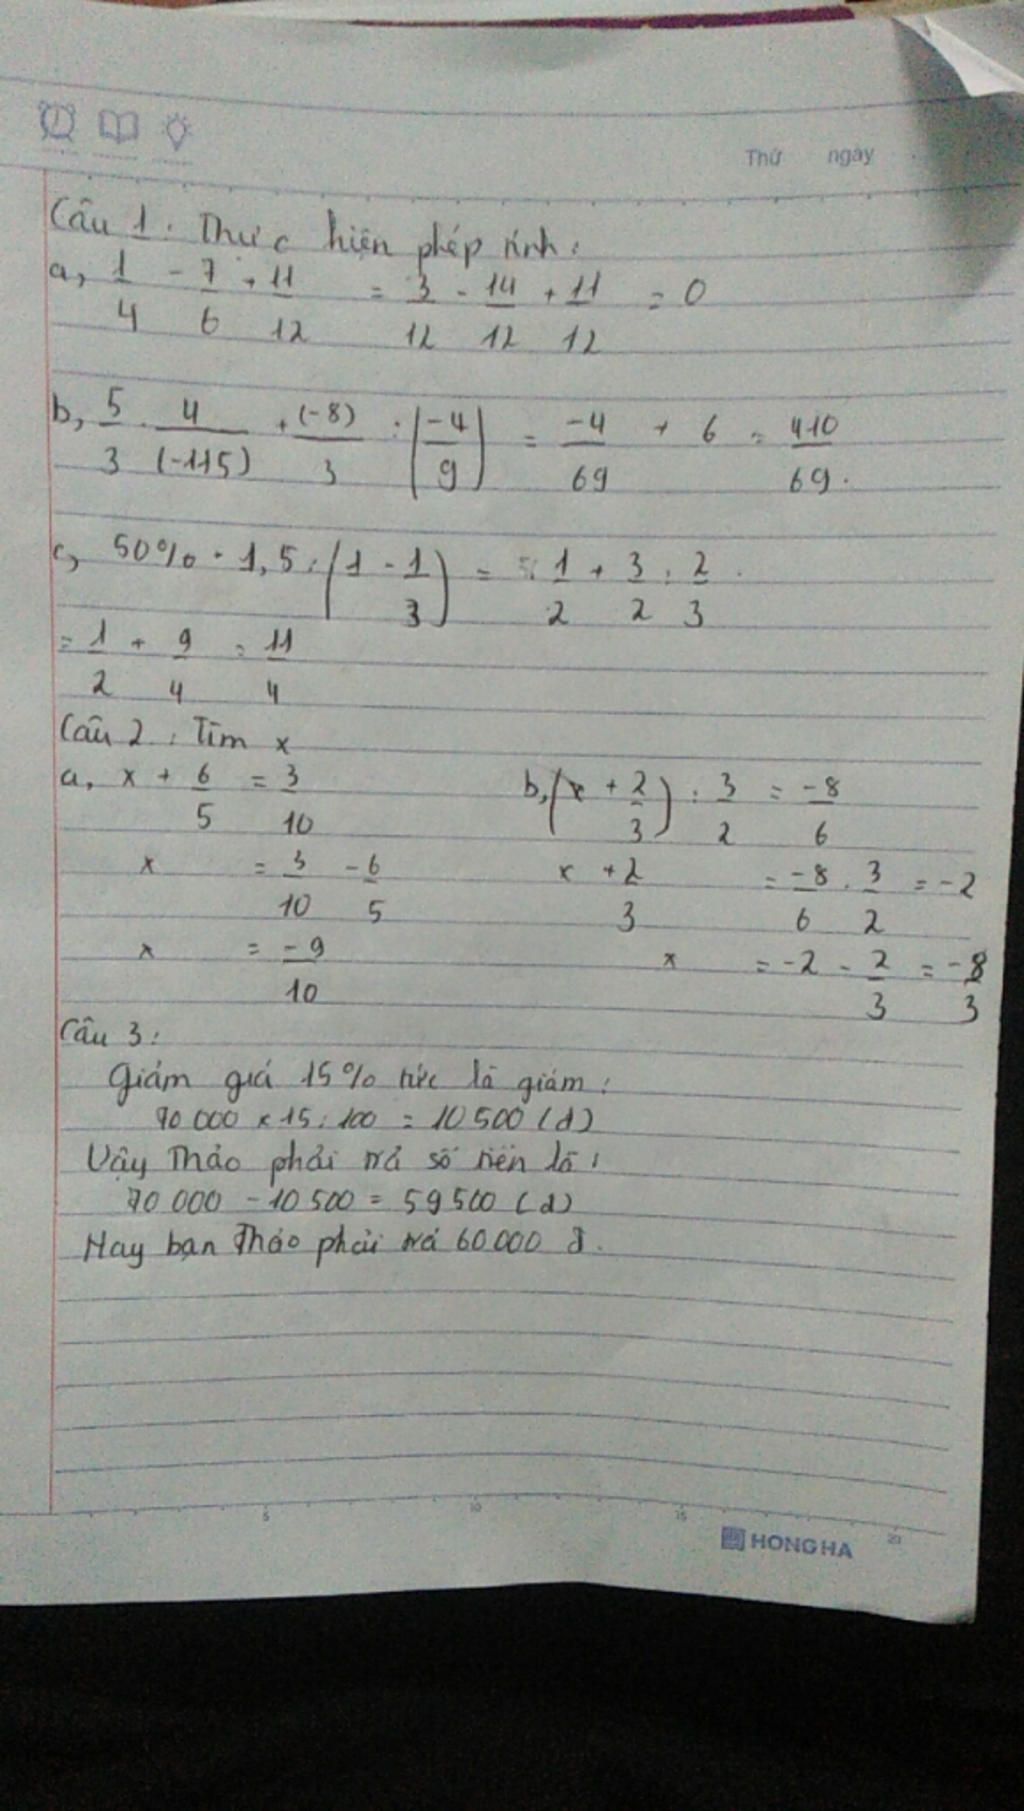 Thứ ngày
Câu 1. Thực hiện phép tính:
a, 1/4 - 7/6 + 11/12 = 3/12 - 14/12 + 11/12 = 0
b, 5/3 . 4/(-115) + (-8)/3 : (-4/9) = -4/69 + 6 = 410/69.
c, 50% . 1,5 : (1 - 1/3) = 1/2 + 3/2 : 2/3
= 1/2 + 9/4 = 11/4
Câu 2: Tìm x
a, x + 6/5 = 3/10
b, (x + 2/3) : 3/2 = -8/6
x = 3/10 - 6/5
x + 2/3 = -8/6 . 3/2 = -2
x = -9/10
x = -2 - 2/3 = -8/3
Câu 3:
Giảm giá 15% tức là giảm:
70 000 x 15 : 100 = 10 500 (đ)
Vậy Thảo phải trả số tiền là:
70 000 - 10 500 = 59 500 (đ)
Hay bạn Thảo phải trả 60 000 đ.
5 10 15 20
HONG HA